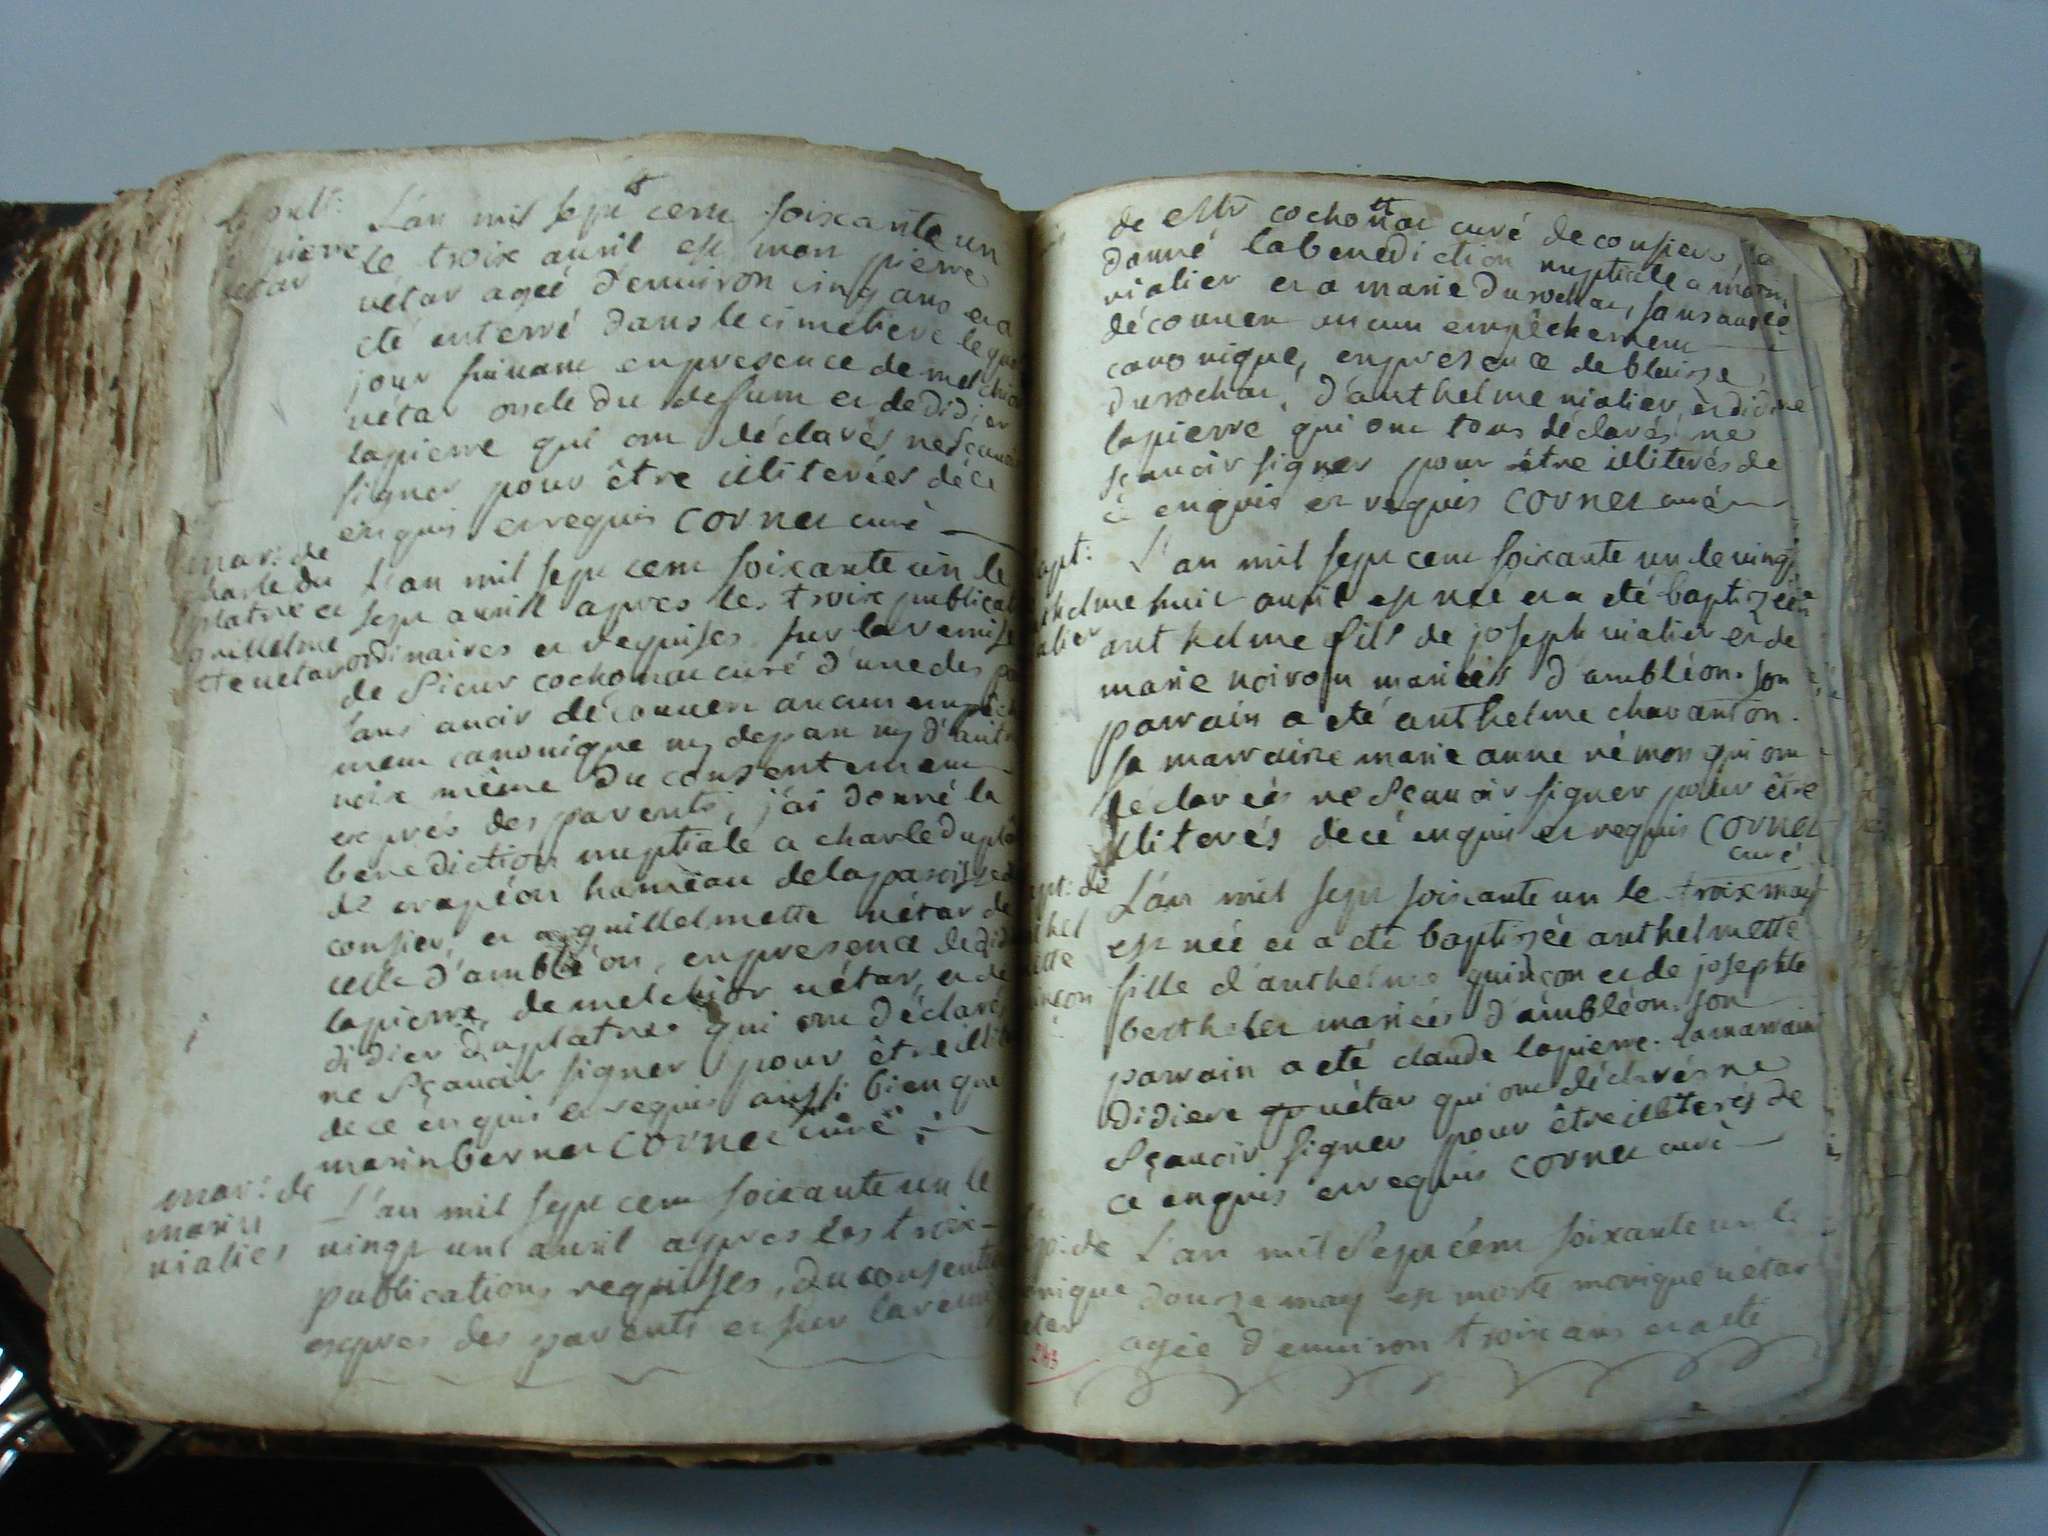 L'an mil sept cent soixante un
le troix auril est mort pierre
pierre
vétar ageé d'enuiron cinq ans et a
vétar
eté enterré dans le cimetiere le
jour suiuant en presence de melchior
vétar oncle du defunt et de didier
lapierre qui ont déclarés ne sçauoir
signer pour être illiterées de ce
enquis et requis cornet curé
mar: de
charle du
platre et
guillelme
tte uetar
L'an mil sept cent soixante un le
sept auril apres les troix publicat
ordinaires et requises sur la remise
de sieur cochonat curé d'une des pa
sans auoir découuert aucun empêch
ment canonique ny depart ny d'autre
uoix même du consentement
exprés des parents, j'ai donné la
benediction nuptiale a charle duplâ
de crapéon hameau de la paroisse de
consier, et a guillelmette uétar de
celle d'ambléon, en presence de did
lapierre, de melchior uétar, et de
didier duplatre qui ont déclarés
ne sçauoir signer pour être illite
de ce enquis et requis aussi bien que
marin bernet cornet curé
mar: de
marin
vialier
L'an mil sept cent soixante un le
uingt unt auril apres les troix
publications requises, du consente
expres des parents et sur la remis
de cochonat curé de consieu j'a
donné la benediction nuptiale a marin
vialier et a marie durochat, sans auoir
découuert aucun empêchement
canonique, en presence de blaise
durochat, d'anthelme vialier, et didier
lapierre qui ont tous déclarés ne
sçauoir signer pour être illiterés de
ce enquis et requis cornet curé
bapt:
L'an mil sept cent soixante un le uingt
huit auril est néé et a eté baptizéé
anthelme fils de joseph vialier et de
marie noiron mariéés d'ambléon. son
parrain a eté anthelme chavanton.
sa marraine marie anne rémon qui ont
déclaréés ne sçauoir signer pour être
illiterés de cé enquis et requis cornet
curé
bapt: de
L'an mil sept soixante un le troix may
est néé et a eté baptizéé anthelmette
fille d'anthelme quinçon et de josephte
berthelet mariéés d'ambléon. son
parrain a eté claude lapierre. sa marraine
didiere uétar qui ont déclarés ne
sçauoir signer pour être illiterés de
ce enquis et requis cornet curé
L'an mil sept cént soixante un le
douze may est morte monique uétar
agée d'enuiron troix ans et a eté
243